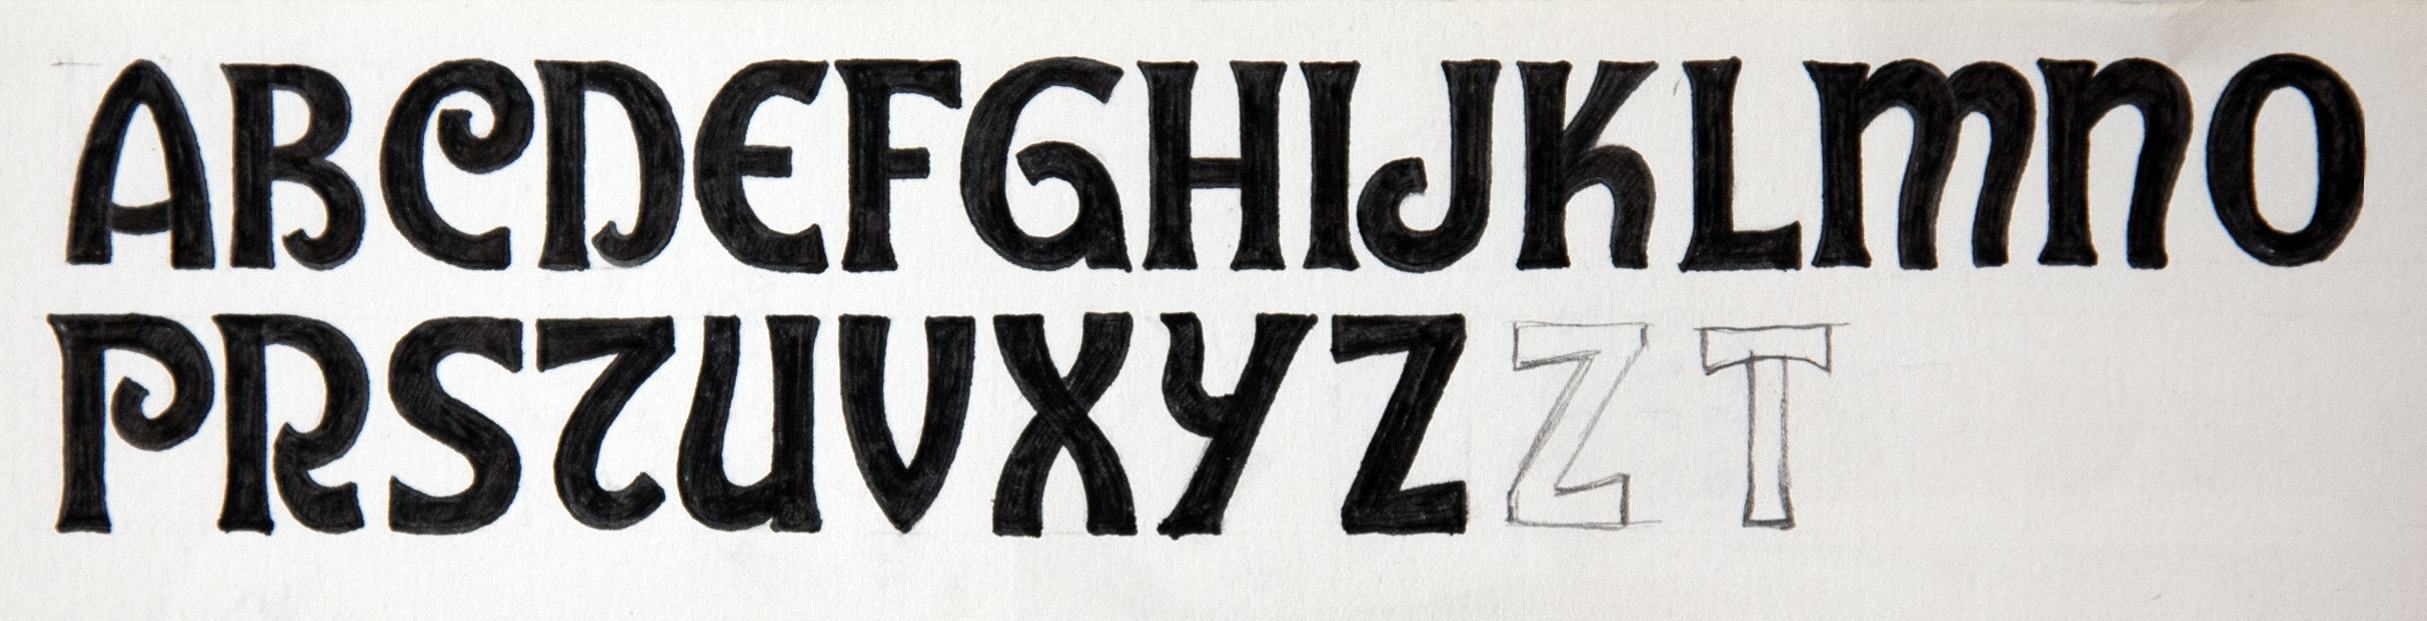 ABCDEFGHIJKLmnO
PRSTUVXYZZT